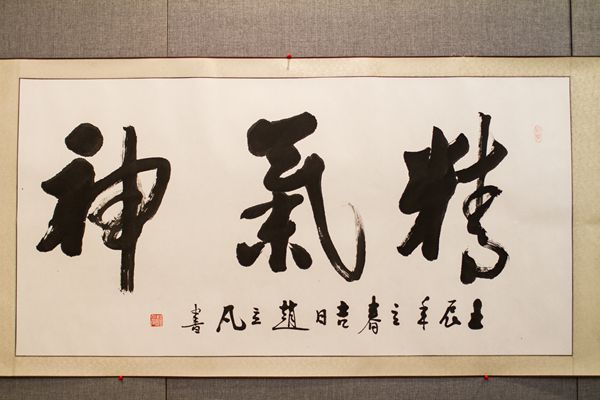 精氣神
壬辰年立春吉日趙立凡書